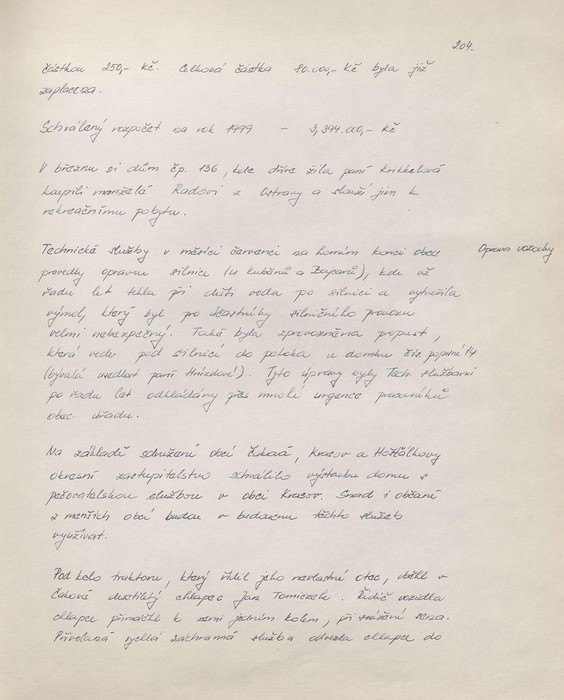 204.
částkou 250,- Kč. Celková částka 80.000,- Kč byla již
zaplacena.
Schválený rozpočet na rok 1999 - 3,394.000,- Kč
V březnu si dům čp. 136, kde dříve žila paní
koupili manželé Radovi z Ostravy a slouží jim k
rekreačnímu pobytu.
Technické služby v měsíci červenci na horním konci obce
Oprava vozovky
provedly opravu silnice (u a Bajcarů), kde už
řadu let tekla při dešti voda po silnici a vytvořila
výmol, který byl pro účastníky silničního provozu
velmi nebezpečný. Také byla zprovozněna propust,
která vede pod silnicí do potoka u domku čís. popisné 14
(bývalá usedlost paní). Tyto úpravy byly Tech. službami
po řadu let odkládány přes mnohé urgence pracovníků
obec. úřadu.
Na základě sdružení obcí Čaková, Krasov a Hošťálkovy
okresní zastupitelstvo schválilo výstavbu domu s
pečovatelskou službou v obci Krasov. Snad i občané
z menších obcí budou v budoucnu těchto služeb
využívat.
Pod kolo traktoru, který řídil jeho nevlastní otec, vběhl v
Čakové desetiletý chlapec Jan. Řidič vozidla
chlapce přimáčkl k zemi jedním kolem, při svážení sena.
Přivolaná rychlá záchranná služba odvezla chlapce do